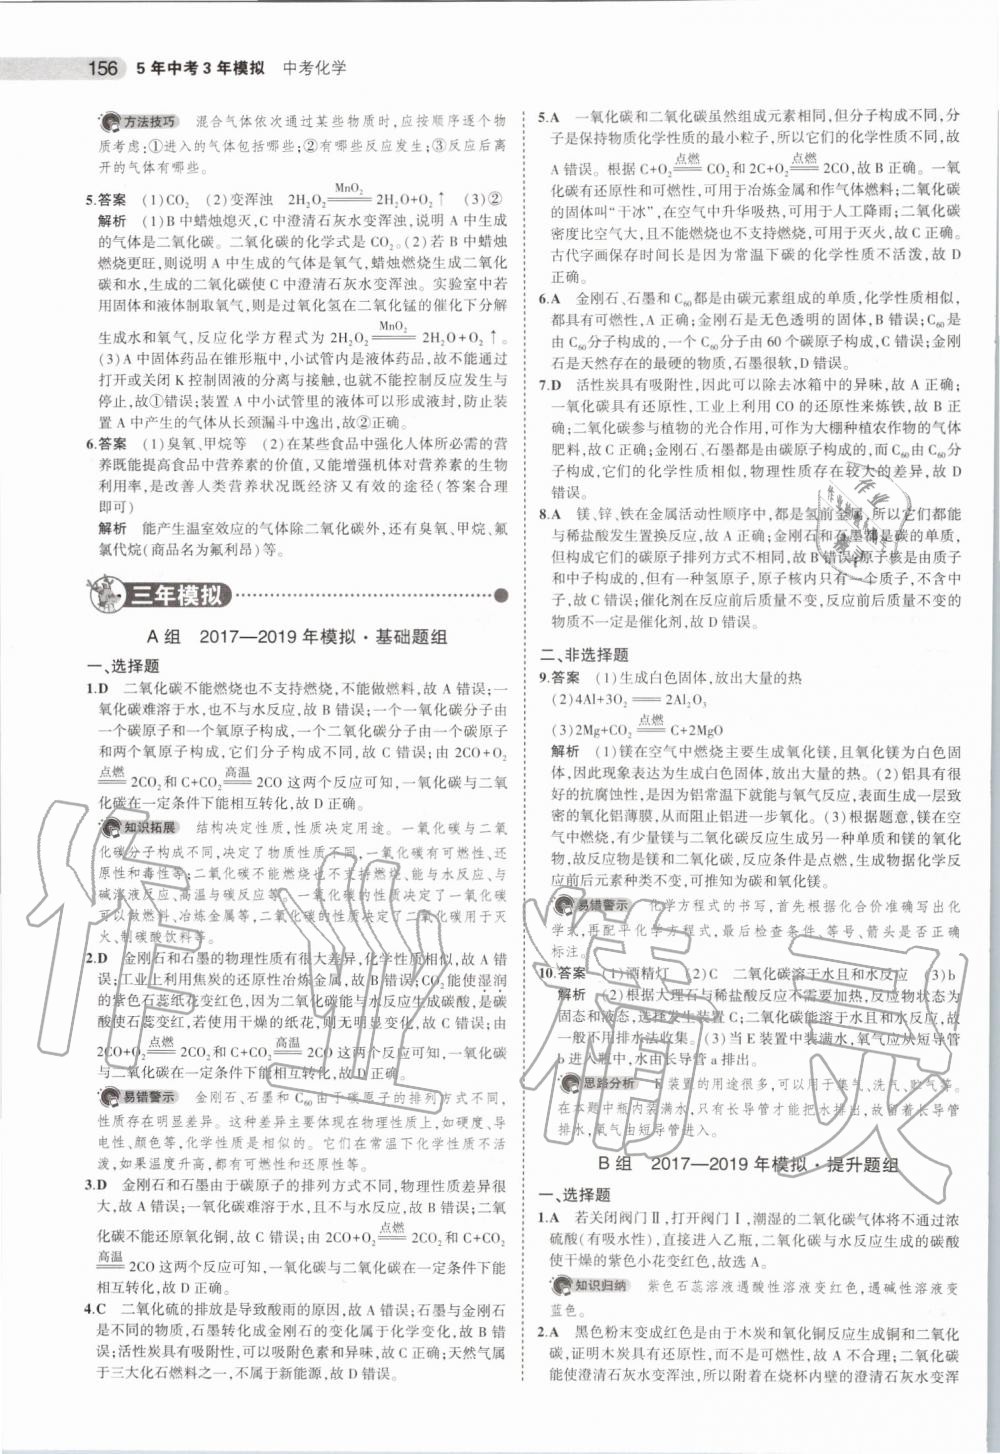 156 5年中考3年模拟 中考化学
方法技巧 混合气体依次通过某些物质时,应按顺序逐个物
质考虑:①进入的气体包括哪些;②有哪些反应发生;③反应后离
开的气体有哪些。
5.答案 (1)CO₂ (2)变浑浊 2H₂O₂ =MnO₂= 2H₂O+O₂↑ (3)②
解析 (1)B中蜡烛熄灭,C中澄清石灰水变浑浊,说明A中生成
的气体是二氧化碳。二氧化碳的化学式是CO₂。(2)若B中蜡烛
燃烧更旺,则A中生成的气体是氧气,蜡烛燃烧生成二氧化
碳和水,生成的二氧化碳使C中澄清石灰水变浑浊。实验室中若
用固体和液体制取氧气,则是过氧化氢在二氧化锰的催化下分解
生成水和氧气,反应化学方程式为2H₂O₂ =MnO₂= 2H₂O+O₂↑。
(3)A中固体药品在锥形瓶中,小试管内是液体药品,故不能通过
打开或关闭K控制固液的分离与接触,也就不能控制反应发生与
停止,故①错误;装置A中小试管里的液体可以形成液封,防止装
置A中产生的气体从长颈漏斗中逸出,故②正确。
6.答案 (1)臭氧、甲烷等 (2)在某些食品中强化人体所必需的营
养既能提高食品中营养素的价值,又能增强机体对营养素的生物
利用率,是改善人类营养状况既经济又有效的途径(答案合理
即可)
解析 能产生温室效应的气体除二氧化碳外,还有臭氧、甲烷、氟
氯代烷(商品名为氟利昂)等。
三年模拟
A组 2017—2019年模拟·基础题组
一、选择题
1.D 二氧化碳不能燃烧也不支持燃烧,不能做燃料,故A错误;一
氧化碳难溶于水,也不与水反应,故B错误;一个一氧化碳分子由
一个碳原子和一个氧原子构成,一个二氧化碳分子由一个碳原子
和两个氧原子构成,它们分子构成不同,故C错误;由2CO+O₂
=点燃= 2CO₂和C+CO₂ =高温= 2CO这两个反应可知,一氧化碳与二氧
化碳在一定条件下能相互转化,故D正确。
知识拓展 结构决定性质,性质决定用途。一氧化碳与二氧
化碳分子构成不同,决定了物质性质不同,一氧化碳有可燃性、还
原性和毒性等;二氧化碳不能燃烧也不支持燃烧、能与水反应、与
碱溶液反应、高温与碳反应等。一氧化碳的性质决定了一氧化碳
可以做燃料、冶炼金属等,二氧化碳的性质决定了二氧化碳用于灭
火、制碳酸饮料等。
2.D 金刚石和石墨的物理性质有很大差异,化学性质相似,故A错
误;工业上利用焦炭的还原性冶炼金属,故B错误;CO₂能使湿润
的紫色石蕊纸花变红色,因为二氧化碳能与水反应生成碳酸,是碳
酸使石蕊变红,若使用干燥的纸花,则无明显变化,故C错误;由
2CO+O₂ =点燃= 2CO₂和C+CO₂ =高温= 2CO这两个反应可知,一氧化碳
与二氧化碳在一定条件下能相互转化,故D正确。
易错警示 金刚石、石墨和C₆₀由于碳原子的排列方式不同,
性质存在明显差异。这种差异主要体现在物理性质上,如硬度、导
电性、颜色等,化学性质是相似的。它们在常温下化学性质不活
泼,如果温度升高,都有可燃性和还原性等。
3.D 金刚石和石墨由于碳原子的排列方式不同,物理性质差异很
大,故A错误;一氧化碳难溶于水,且不与水反应,故B错误;二氧
化碳不能还原氧化铜,故C错误;由2CO+O₂ =点燃= 2CO₂和C+CO₂
=高温= 2CO这两个反应可知,一氧化碳与二氧化碳在一定条件下能
相互转化,故D正确。
4.C 二氧化硫的排放是导致酸雨的原因,故A错误;石墨与金刚石
是不同的物质,石墨转化成金刚石的变化属于化学变化,故B错
误;活性炭具有吸附性,可以吸附色素和异味,故C正确;天然气属
于三大化石燃料之一,不属于新能源,故D错误。
5.A 一氧化碳和二氧化碳虽然组成元素相同,但分子构成不同,分
子是保持物质化学性质的最小粒子,所以它们的化学性质不同,故
A错误。根据C+O₂ =点燃= CO₂和2C+O₂ =点燃= 2CO,故B正确。一氧
化碳有还原性和可燃性,可用于冶炼金属和作气体燃料;二氧化碳
的固体叫“干冰”,在空气中升华吸热,可用于人工降雨;二氧化碳
密度比空气大,且不能燃烧也不支持燃烧,可用于灭火,故C正确。
古代字画保存时间长是因为常温下碳的化学性质不活泼,故D
正确。
6.A 金刚石、石墨和C₆₀都是由碳元素组成的单质,化学性质相似,
都具有可燃性,A正确;金刚石是无色透明的固体,B错误;C₆₀是
由C₆₀分子构成的,一个C₆₀分子由60个碳原子构成,C错误;金刚
石是天然存在的最硬的物质,石墨很软,D错误。
7.D 活性炭具有吸附性,因此可以除去冰箱中的异味,故A正确;
一氧化碳具有还原性,工业上利用CO的还原性来炼铁,故B正
确;二氧化碳参与植物的光合作用,可作为大棚种植农作物的气体
肥料,故C正确;金刚石、石墨都是由碳原子构成的,而C₆₀由C₆₀分
子构成,它们的化学性质相似,物理性质存在较大的差异,故D
错误。
8.A 镁、锌、铁在金属活动性顺序中,都是氢前金属,所以它们都能
与稀盐酸发生置换反应,故A正确;金刚石和石墨都是碳的单质,
但构成它们的碳原子排列方式不相同,故B错误;原子核是由质子
和中子构成的,但有一种氢原子,原子核内只有一个质子,不含中
子,故C错误;催化剂在反应前后质量不变,反应前后质量不变的
物质不一定是催化剂,故D错误。
二、非选择题
9.答案 (1)生成白色固体,放出大量的热
(2)4Al+3O₂ == 2Al₂O₃
(3)2Mg+CO₂ =点燃= C+2MgO
解析 (1)镁在空气中燃烧主要生成氧化镁,且氧化镁为白色固
体,因此现象表达为生成白色固体,放出大量的热。(2)铝具有很
好的抗腐蚀性,是因为铝常温下就能与氧气反应,表面生成一层致
密的氧化铝薄膜,从而阻止铝进一步氧化。(3)根据题意,镁在空
气中燃烧,有少量镁与二氧化碳反应生成另一种单质和镁的氧化
物,故反应物是镁和二氧化碳,反应条件是点燃,生成物据化学反
应前后元素种类不变,可推知为碳和氧化镁。
易错警示 化学方程式的书写,首先根据化合价准确写出化
学式,再配平化学方程式,最后检查条件、等号、箭头是否正确
标注。
10.答案 (1)酒精灯 (2)C 二氧化碳溶于水且和水反应 (3)b
解析 (2)根据大理石与稀盐酸反应不需要加热,反应物状态为
固态和液态,选择发生装置C;二氧化碳能溶于水且和水反应,故
一般不用排水法收集。(3)当E装置中装满水,氧气应从短导管
b进入瓶中,水由长导管a排出。
思路分析 E装置的用途很多,可以用于集气、洗气、贮气等。
在本题中瓶内装满水,只有长导管才能把水排出,故留着长导管
排水,氧气由短导管进入。
B组 2017—2019年模拟·提升题组
一、选择题
1.A 若关闭阀门Ⅱ,打开阀门Ⅰ,潮湿的二氧化碳气体将不通过浓
硫酸(有吸水性),直接进入乙瓶,二氧化碳与水反应生成的碳酸
使干燥的紫色小花变红色,故选A。
知识归纳 紫色石蕊溶液遇酸性溶液变红色,遇碱性溶液变
蓝色。
2.A 黑色粉末变成红色是由于木炭和氧化铜反应生成铜和二氧化
碳,证明木炭具有还原性,而不是可燃性,故A不合理;二氧化碳
能使澄清石灰水变浑浊,所以附着在烧杯内壁的澄清石灰水变浑
作业精灵